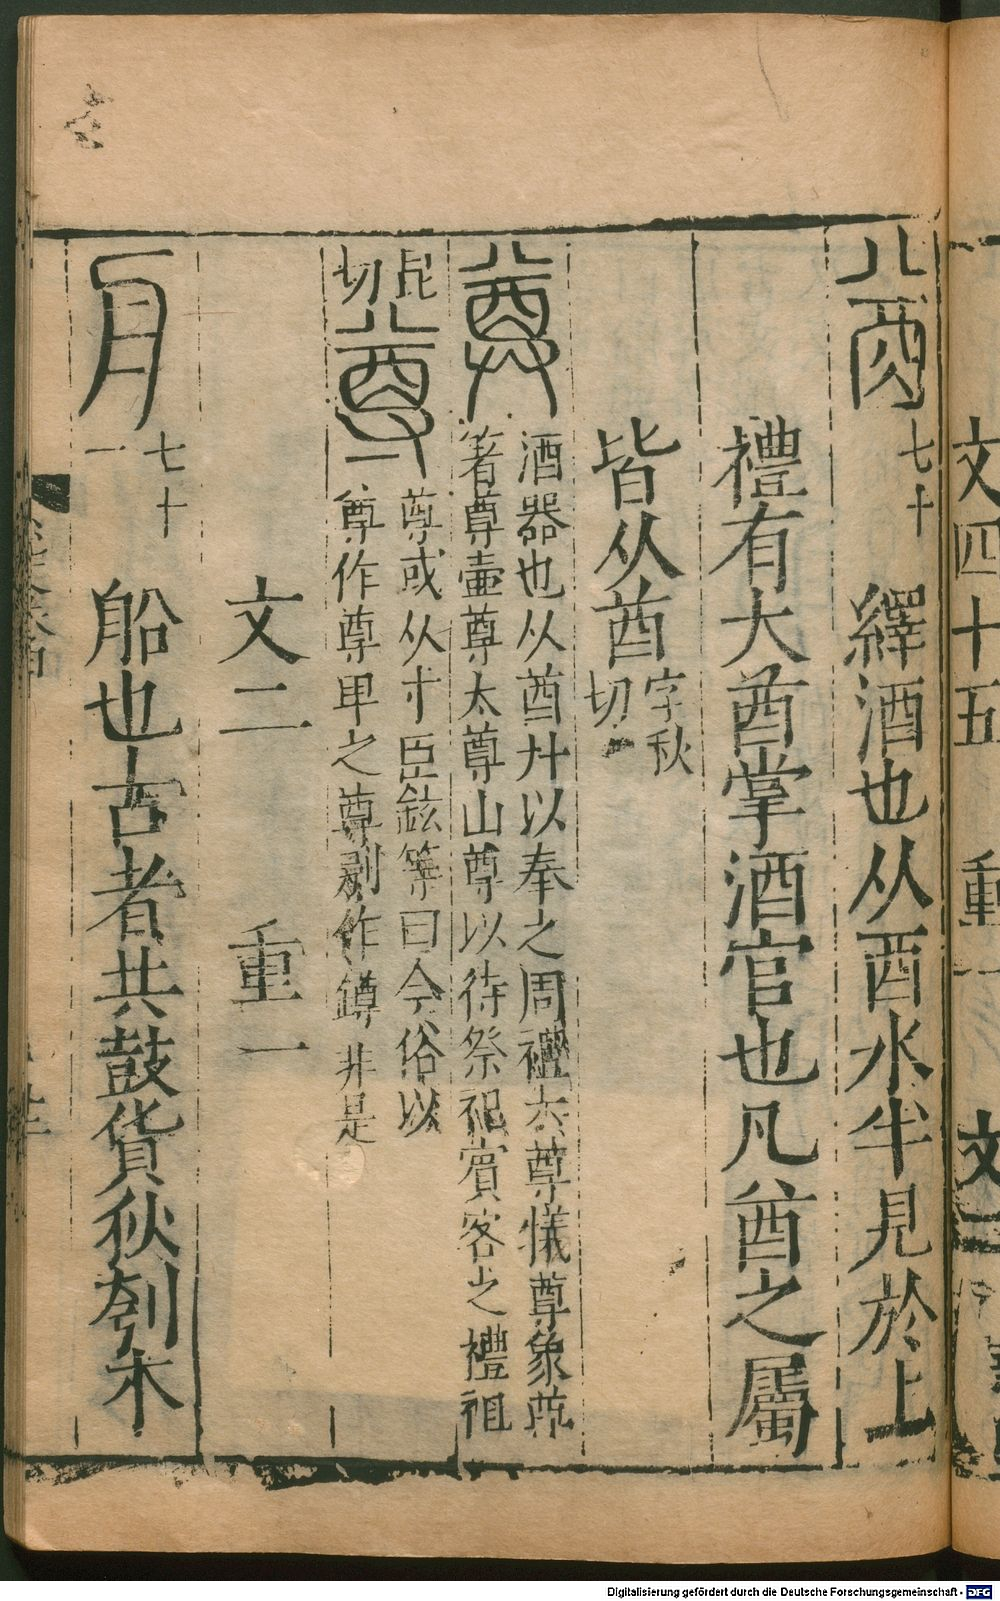 文四十五 重一 文
酋 七十 繹酒也从酉水半見於上
禮有大酋掌酒官也凡酋之屬
皆从酋 字秋
切
酒器也从酋廾以奉之周禮六尊犧尊象尊
著尊壷尊太尊山尊以待祭祀賓客之禮祖
昆 尊 尊或从寸臣鉉等曰今俗以
切 尊作尊卑之尊別作罇非是
文二 重一
七十
一
船也古者共鼓貨狄刳木
Digitalisierung gefördert durch die Deutsche Forschungsgemeinschaft - DFG